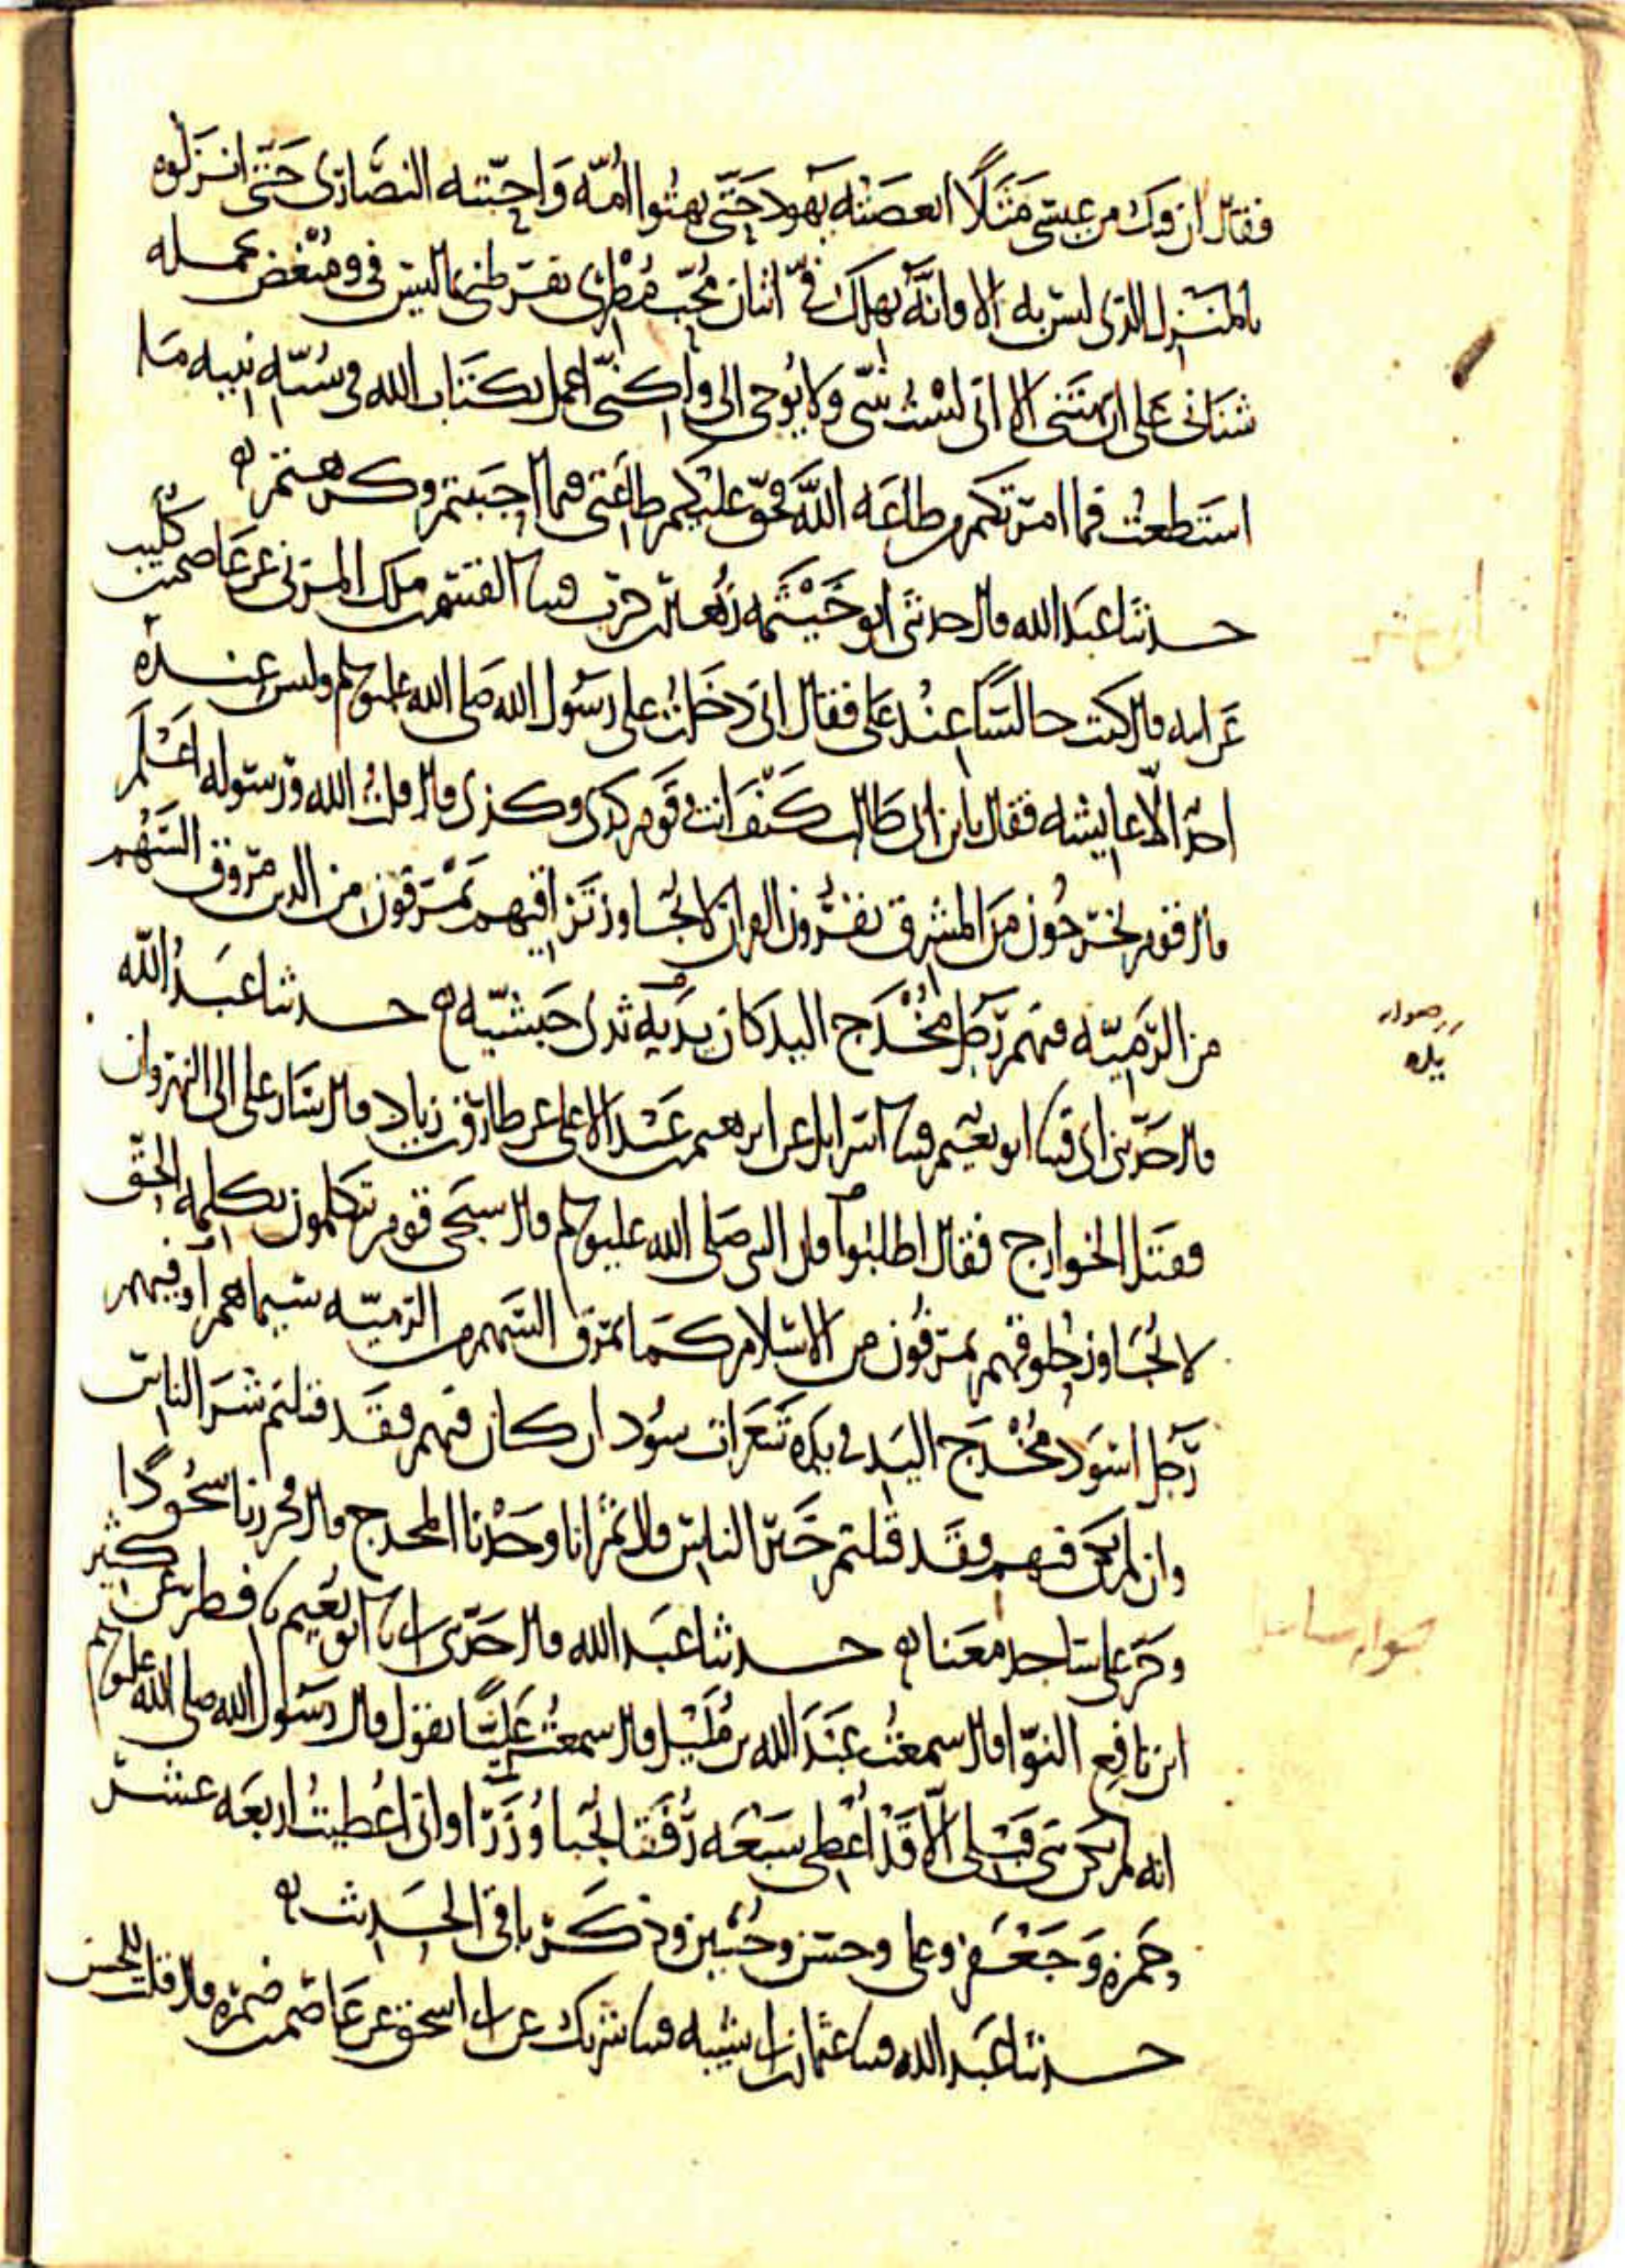 فقال ان فيك من عيسى مثلا ابغضته يهود حتى بهتوا امه واحبته النصارى حتى انزلوه
بالمنزل الذى ليس به الا وانه يهلك فيّ اثنان محب مطرى يقرظنى بما ليس فى ومبغض يحمله
شنانى على ان يبهتنى الا انى لست بنبى ولا يوحى الى ولكنى اعمل بكتاب الله وسنه نبيه ما
استطعت فما امرتكم من طاعه الله فحق عليكم طاعتى فيما احببتم وكرهتم ه
حدثنا عبد الله قال حدثنى ابو خيثمه زهير بن حرب قثنا القسم بن ملك المزنى عن عاصم بن كليب
عن ابيه قال كنت جالسا عند على فقال انى دخلت على رسول الله صلى الله عليه وسلم وليس عنده
احد الا عايشه فقال يا بن ابى طالب كيف انت وقوم كذى وكذى قال قلت الله ورسوله اعلم
قال قوم يخرجون من المشرق يقرؤن القران لا يجاوز تراقيهم يمرقون من الدين مروق السهم
من الرميّه فمنهم رجل مخدج اليد كان يديه ثدى حبشيّه ه حدثنا عبد الله
قال حدثنى ابى قثنا ابو نعيم قثنا اسرايل عن ابرهيم بن عبد الاعلى عن طارق بن زياد قال سار على الى النهروان
فقتل الخوارج فقال اطلبوا فان النبى صلى الله عليه وسلم قال سيجى قوم يتكلمون بكلمه الحق
لا يجاوز حلوقهم يمرقون من الاسلام كما يمرق السهم من الرميّه سيماهم او فيهم
رجل اسود مخدج اليد فى يده شعرات سود ان كان فيهم فقد قتلتم شر الناس
وان لم يكن فيهم فقد قتلتم خير الناس قال ثم انا وجدنا المخدج قال فخررنا سجودا
وخر على ساجدا معنا ه حدثنا عبد الله قال حدثنى ابى نا ابو نعيم نا فطر عن كثير
ابن نافع النوّا قال سمعت عبد الله بن مليل قال سمعت عليّا يقول قال رسول الله صلى الله عليه وسلم
انه لم يكن نبى قبلى الا قد اعطى سبعه رفقا نجبا وزرا وانى اعطيت اربعه عشر
حمزه وجعفر وعلى وحسن وحسين وذكر باقى الحديث ه
حدثنا عبد الله قثنا عثمان بن ابى شيبه قثنا شريك عن ابى اسحق عن عاصم بن ضمره قال قلت للحسن
يده